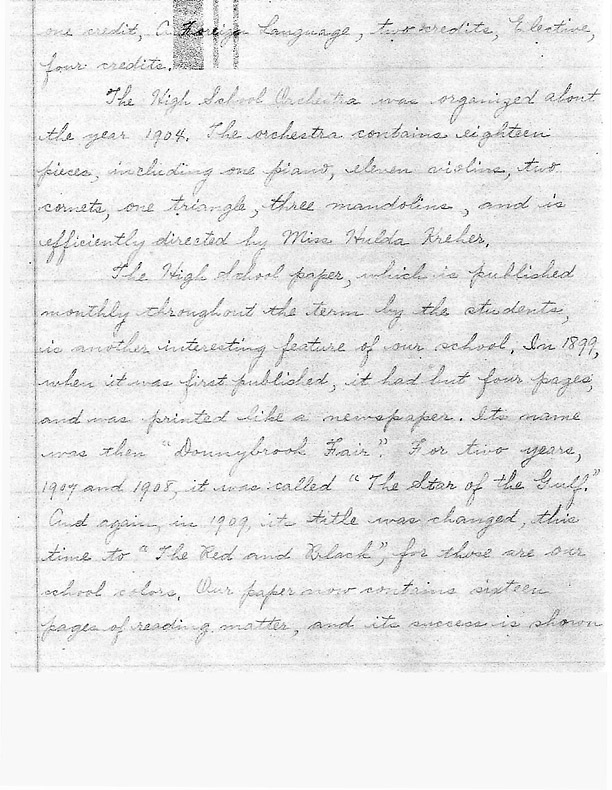 one credit, A Foreign Language, two credits, Elective,
four credits.
The High School Orchestra was organized about
the year 1904. The orchestra contains eighteen
pieces, including one piano, eleven violins, two
cornets, one triangle, three mandolins, and is
efficiently directed by Miss Hulda Kreher.
The High School paper, which is published
monthly throughout the term by the students,
is another interesting feature of our school. In 1899,
when it was first published, it had but four pages,
and was printed like a newspaper. Its name
was then "Donnybrook Fair". For two years,
1907 and 1908, it was called "The Star of the Gulf."
And again, in 1909, it title was changed, this
time to "The Red and Black", for those are our
school colors. Our paper now contains sixteen
pages of reading matter, and its success is shown